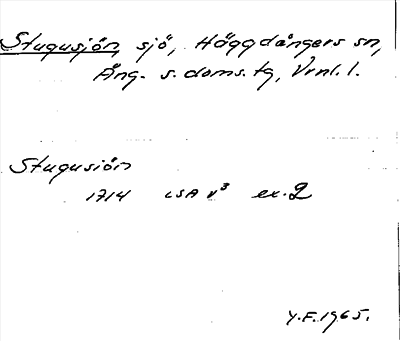 Stugusjön, sjö, Häggdångers sn,
Ång. s. doms. tg, Vrnl. l.
Stugusiön
1714 LSA v³ ex. 2
Y.F. 1965.